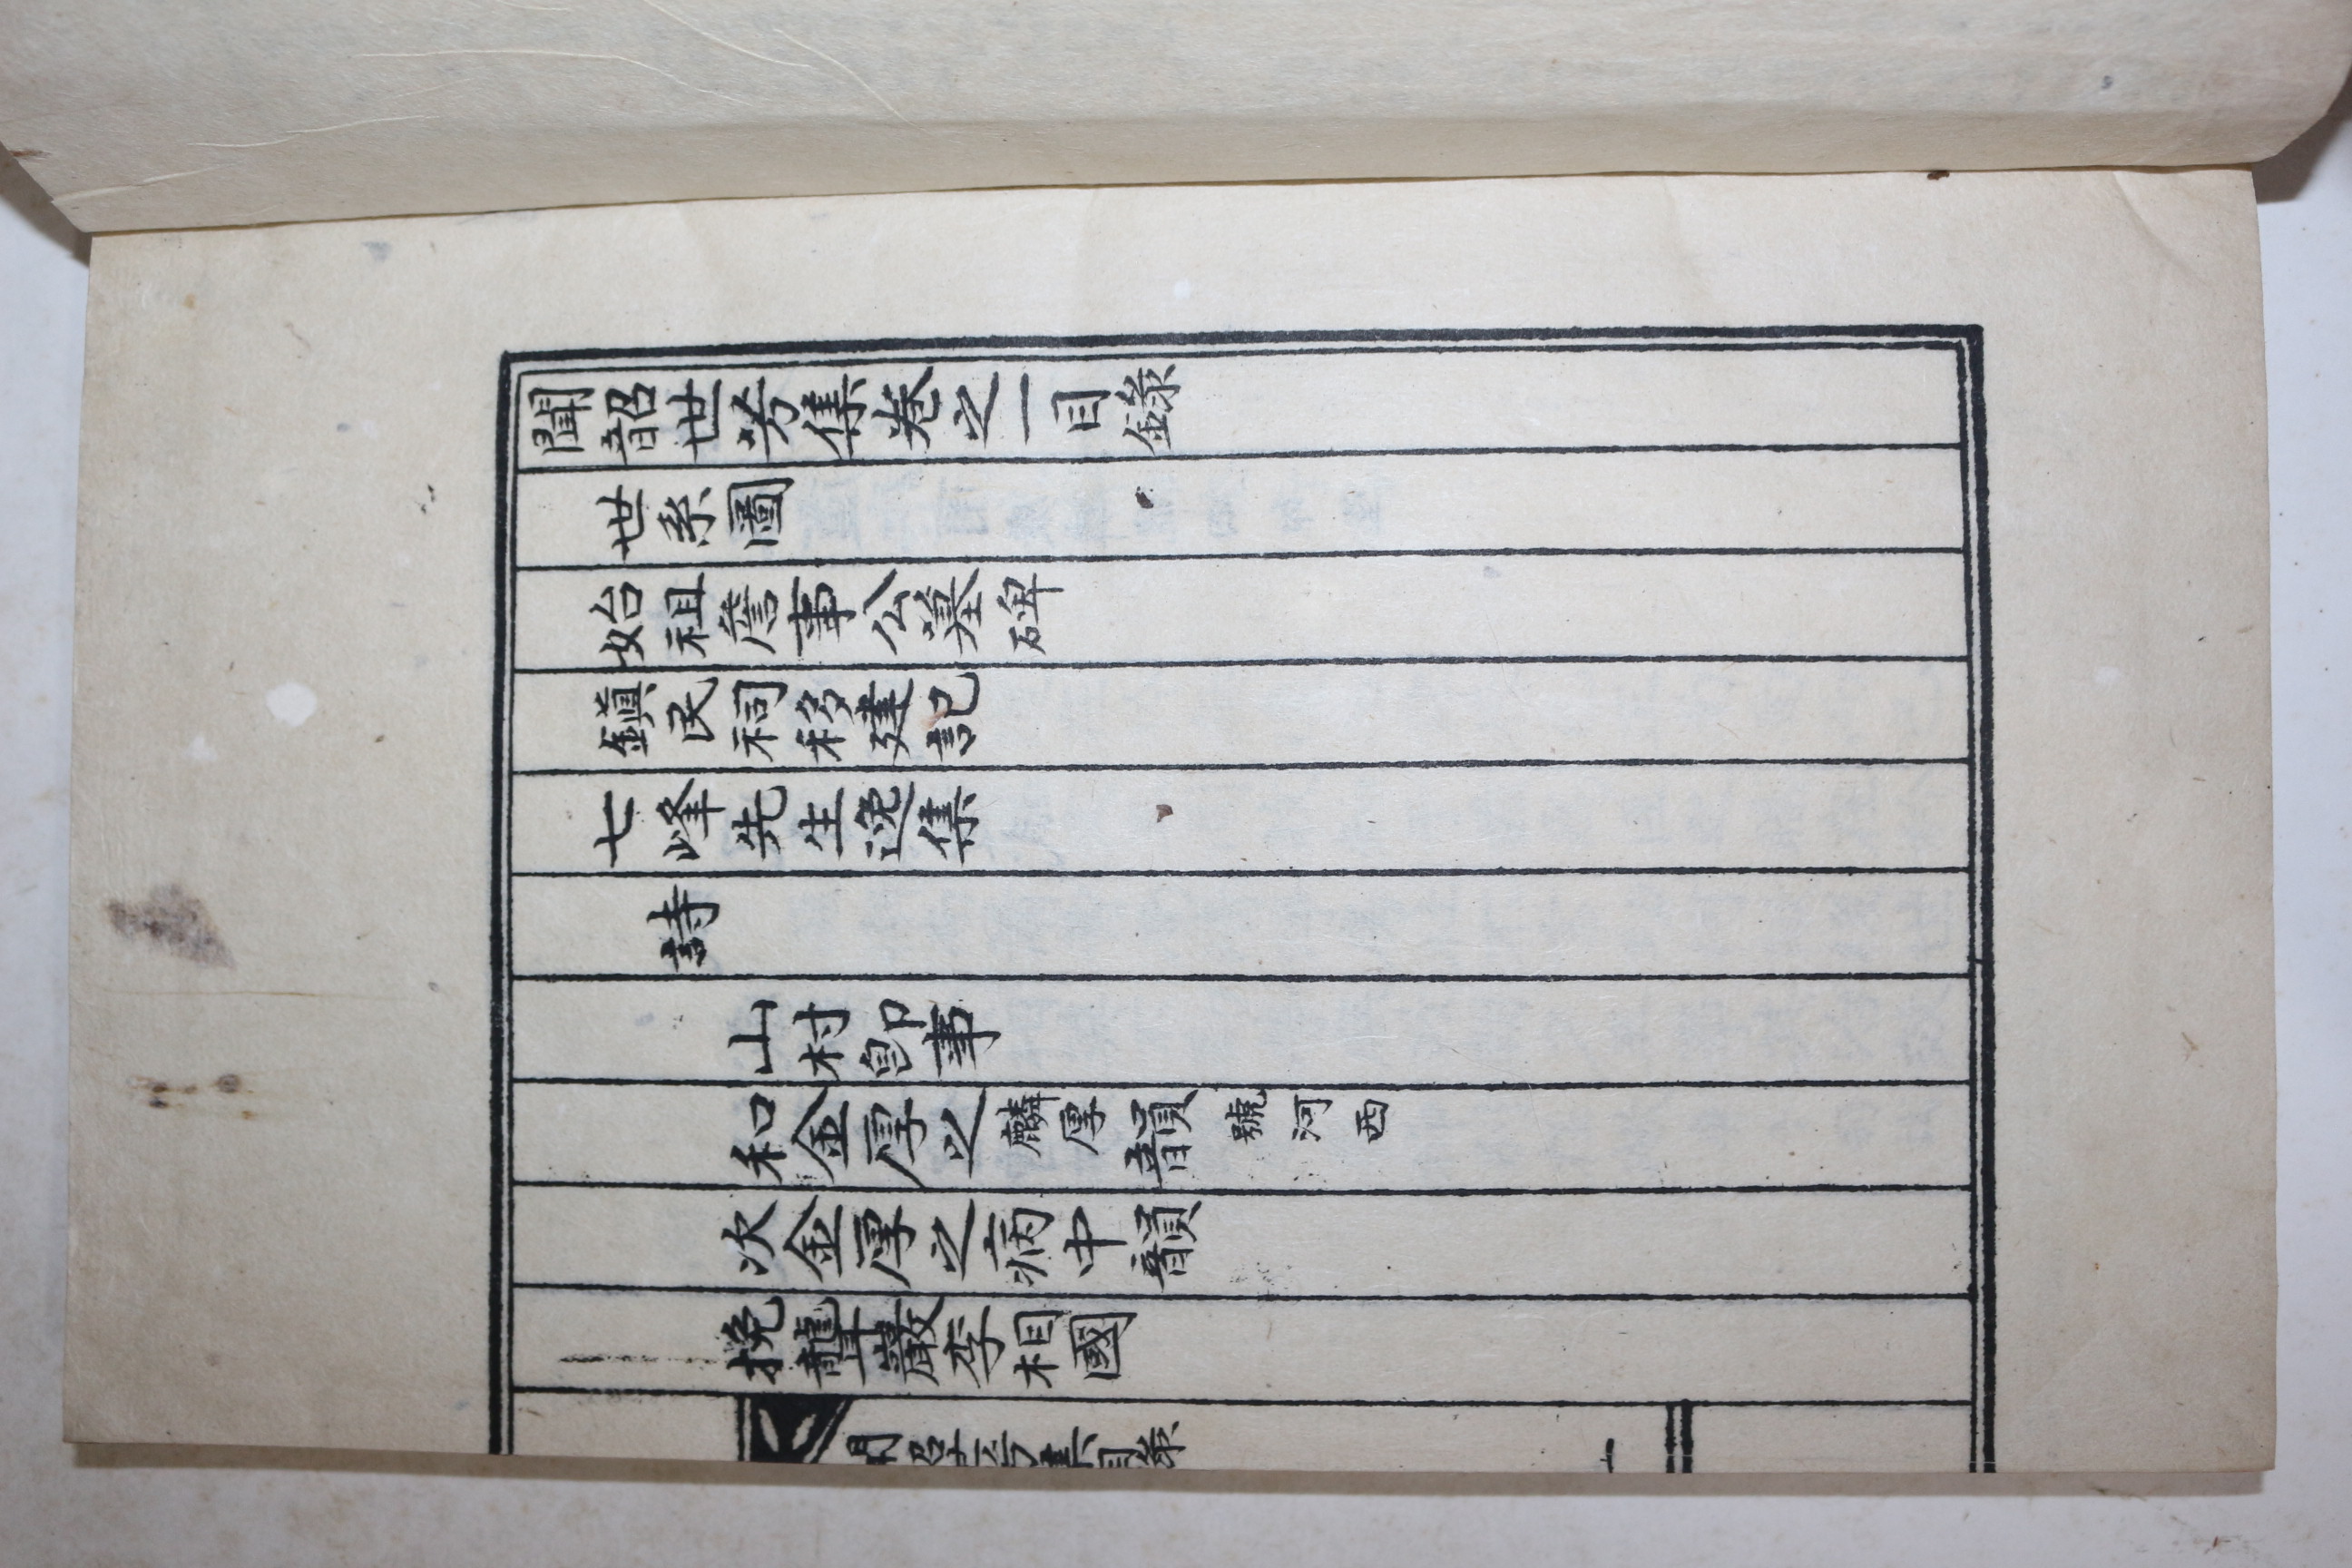 聞韶世芳集卷之一目錄
世系圖
始祖詹事公墓碑
鎭民祠移建記
七峰先生逸集
詩
山村卽事
和金厚之麟厚韻號河西
次金厚之病中韻
挽聾巖李相國
聞韶世芳集目錄 一